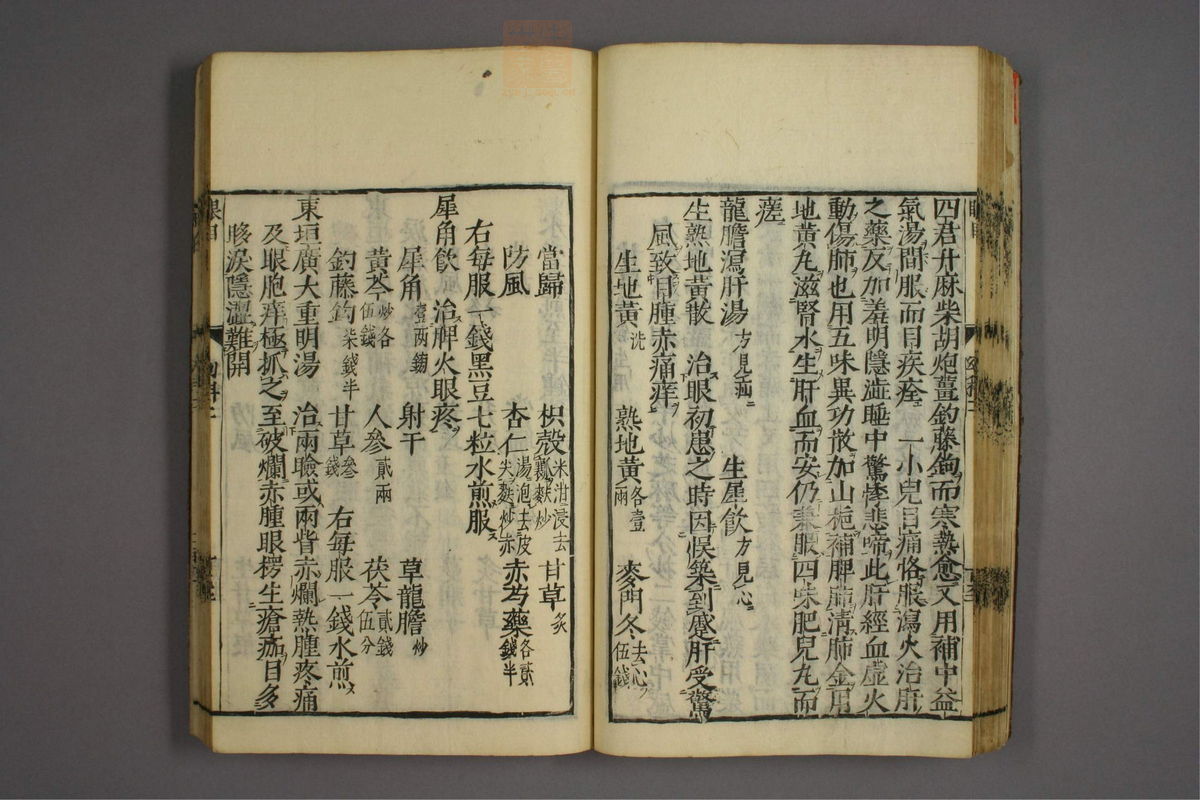 四君升麻柴胡炮薑釣藤鉤而寒熱愈又用補中益
氣湯間服而目疾痊 一小兒目痛恪服瀉火治肝
之藥反加羞明隱澁睡中驚悸悲啼此肝經血虛火
動傷肺也用五味異功散加山梔補脾肺清肺金用
地黃丸滋腎水生肝血而安仍兼服四味肥兒丸而
瘥
龍膽瀉肝湯 方見疝 生犀飲 方見心
生熟地黃散 治眼初患之時因悞築到蹙肝受驚
風致目腫赤痛痒
生地黃 洗 熟地黃 各壹兩 麥門冬 去心伍錢
當歸 枳殼 米泔浸去瓤麩炒 甘草 炙
防風 杏仁 湯泡去皮尖麩炒赤 赤芍藥 各貳錢半
右每服一錢黑豆七粒水煎服
犀角飲 治脾火眼疼
犀角 壹两鎊 射干 草龍膽 炒
黃芩 炒各伍錢 人參 貳兩 茯苓 貳錢伍分
釣藤鉤 柒錢半 甘草 叁錢 右每服一錢水煎
東垣廣大重明湯 治兩瞼或兩眥赤爛熱腫疼痛
及眼胞痒極抓之至破爛赤腫眼楞生瘡痂目多
眵淚隱澀難開